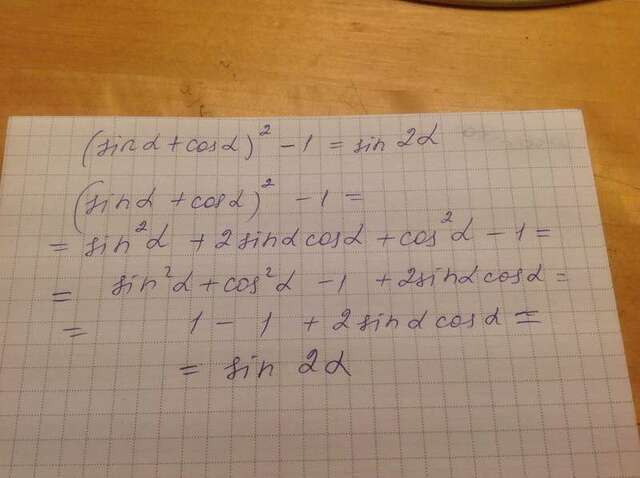 (sinα + cosα)² - 1 = sin 2α
(sinα + cosα)² - 1 =
= sin²α + 2sinαcosα + cos²α - 1 =
= sin²α + cos²α - 1 + 2sinαcosα =
= 1 - 1 + 2sinαcosα =
= sin 2α